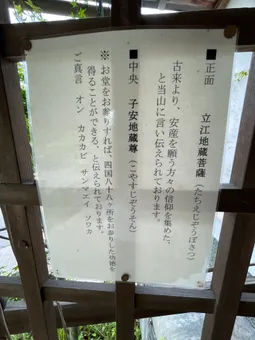 ■正面　立江地蔵菩薩（たちえじぞうぼさつ）
古来より、安産を願う方々の信仰を集めた、
と当山に言い伝えられております。
■中央　子安地蔵尊（こやすじぞうそん）
※お堂をお参りすれば、四国八十八ヶ所をお参りした功徳を
得ることができる、と伝えられております。
ご真言　オン　カカカビ　サンマエイ　ソワカ